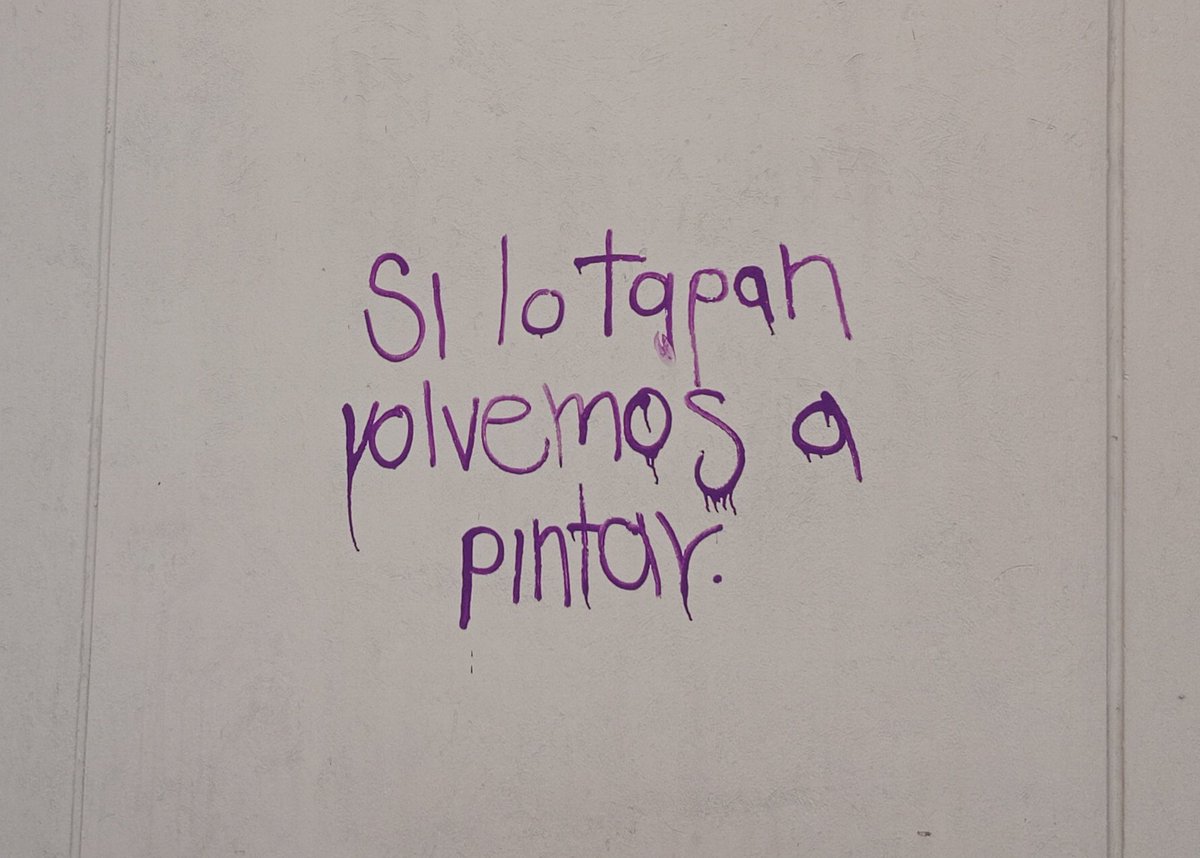 Si lo tapan
volvemos a
pintar.